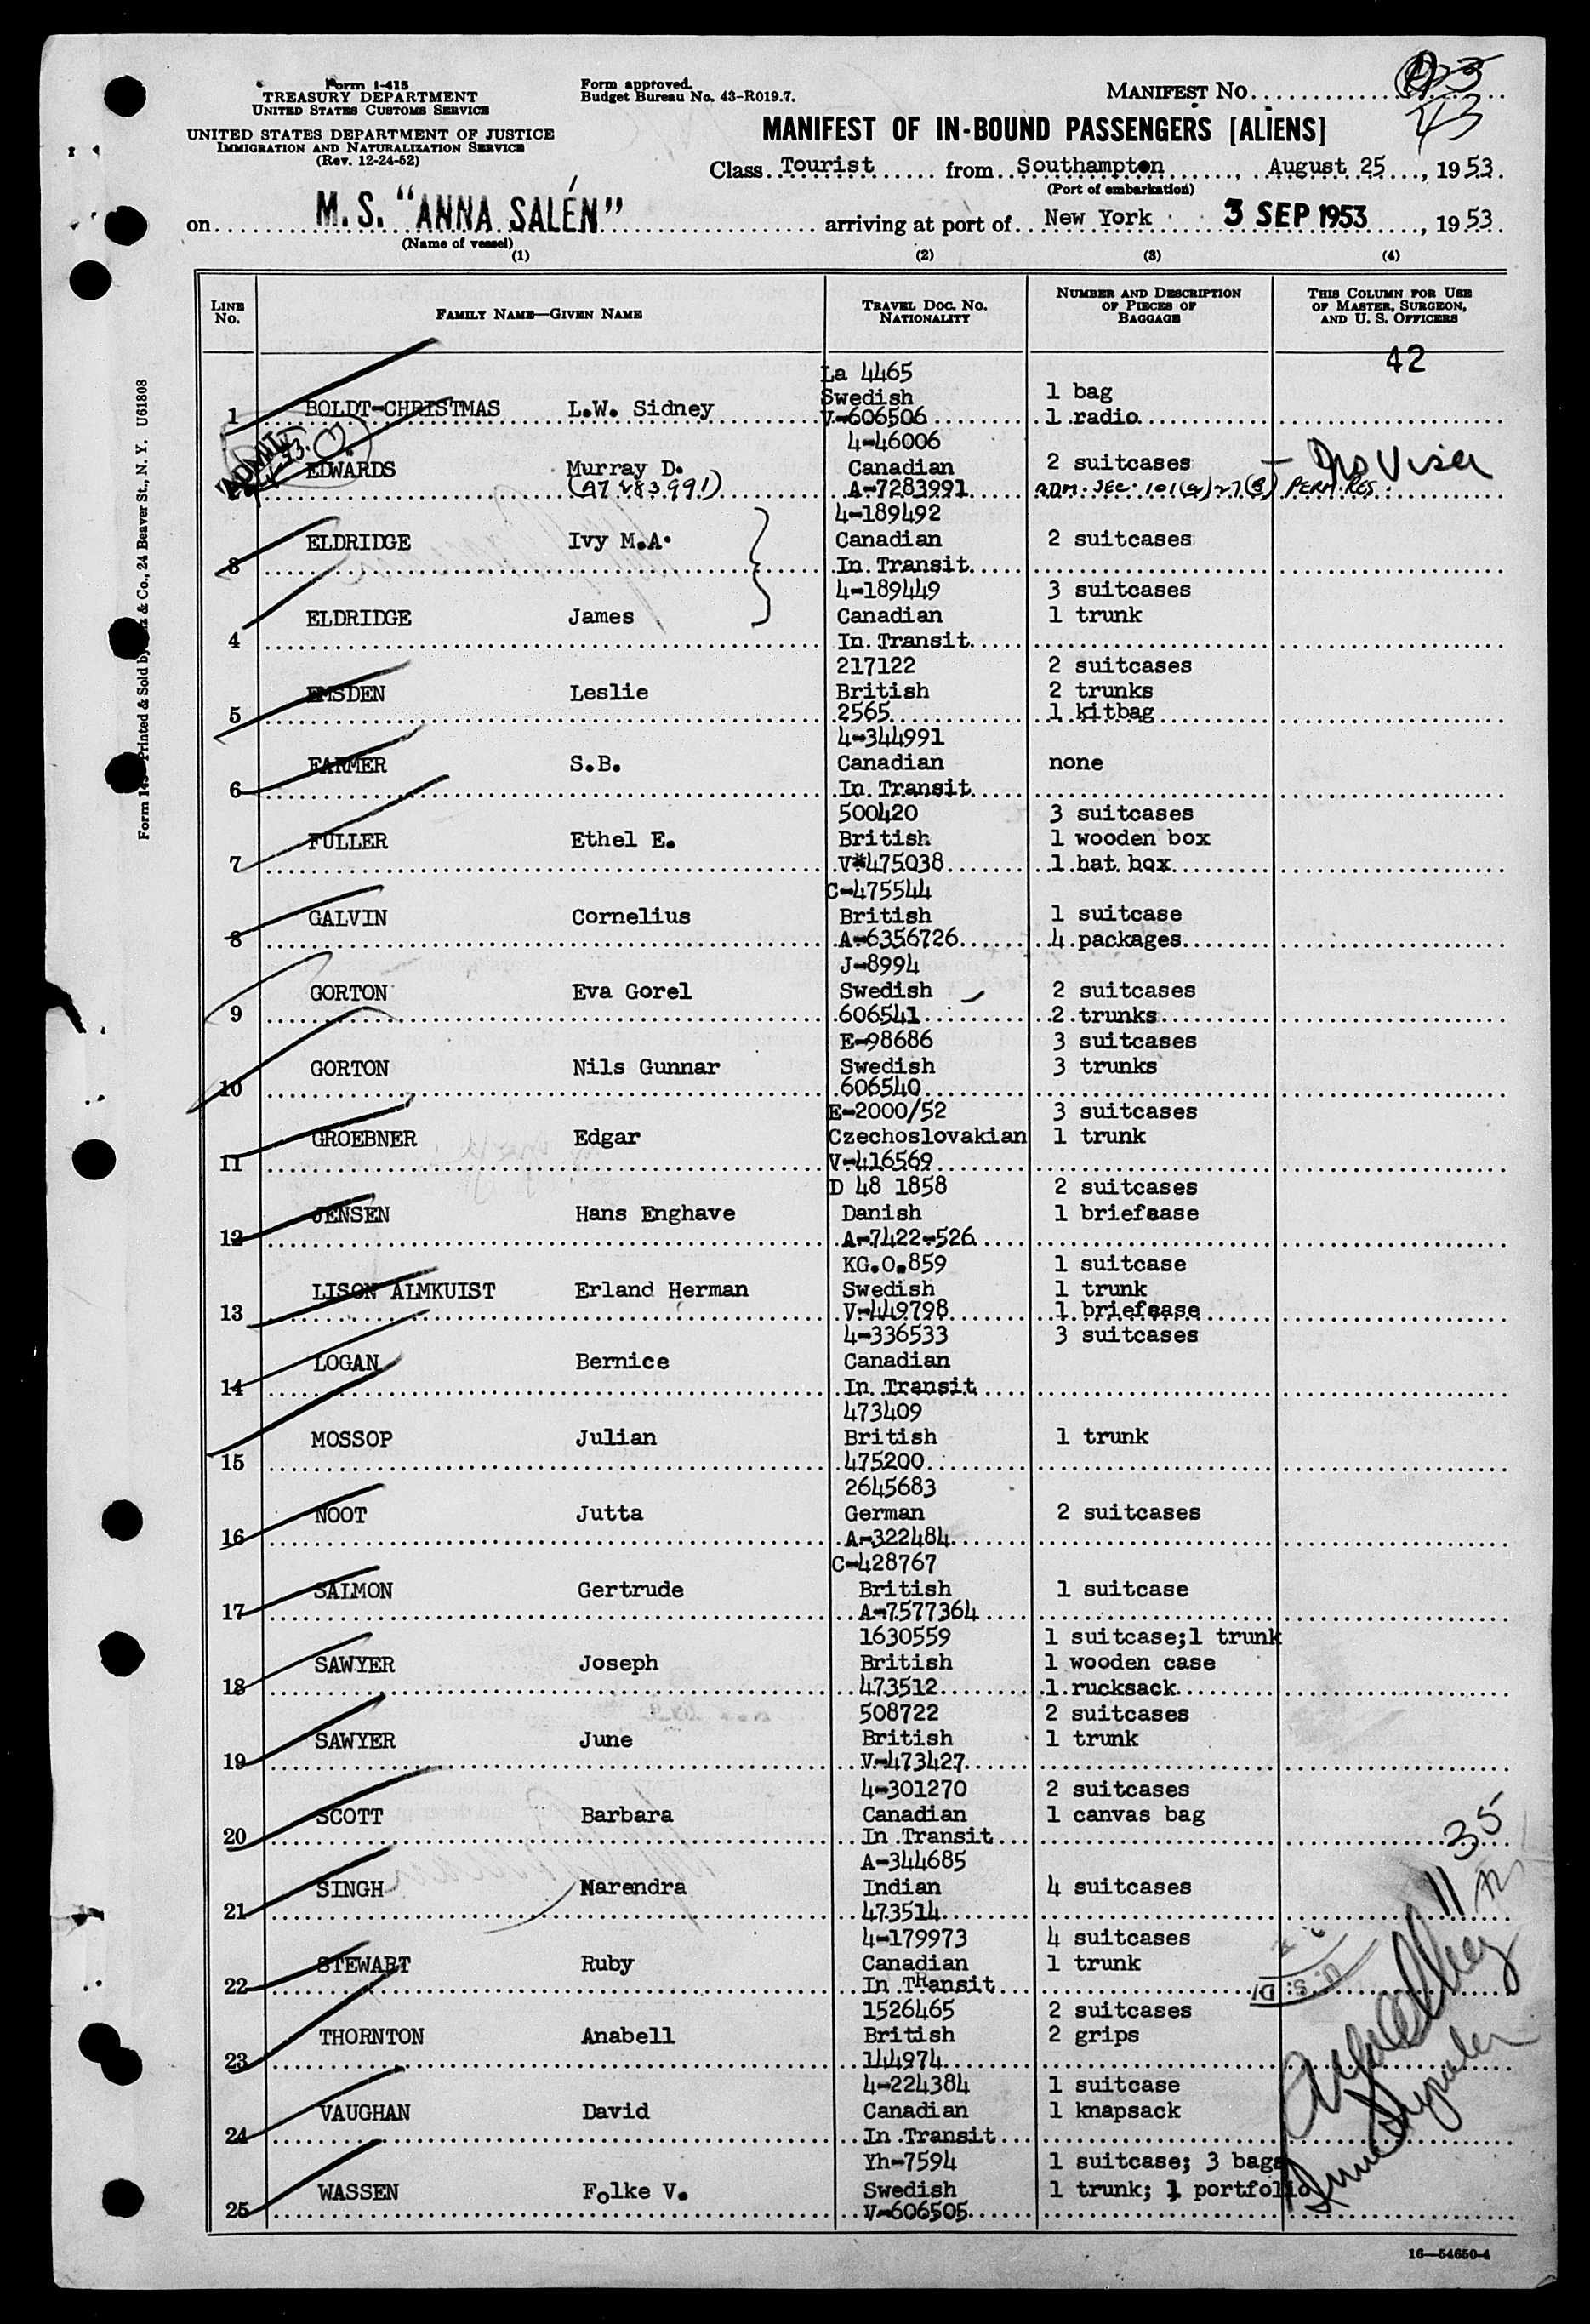 Form I-415
TREASURY DEPARTMENT
UNITED STATES CUSTOMS SERVICE
UNITED STATES DEPARTMENT OF JUSTICE
IMMIGRATION AND NATURALIZATION SERVICE
(Rev. 12-24-52)
Form approved.
Budget Bureau No. 43-R019.7.
MANIFEST NO. 43
MANIFEST OF IN-BOUND PASSENGERS [ALIENS]
Class Tourist from Southampton, August 25, 1953
(Port of embarkation)
on M.S. "ANNA SALÉN" arriving at port of New York 3 SEP 1953, 1953
(Name of vessel)
(1) (2) (3) (4)
LINE NO. FAMILY NAME—GIVEN NAME TRAVEL DOC. NO. NATIONALITY NUMBER AND DESCRIPTION OF PIECES OF BAGGAGE THIS COLUMN FOR USE OF MASTER, SURGEON, AND U. S. OFFICERS
42
La 4465
1 BOLDT-CHRISTMAS L.W. Sidney Swedish 1 bag
V-606506 1 radio
ADMIT
4-46006
EDWARDS Murray D. Canadian 2 suitcases — No Visa
(A7283991) A-7283991 ADM. SEC. 101(a)27(B) PERM. RES.
4-189492
3 ELDRIDGE Ivy M.A. Canadian 2 suitcases
In Transit
4-189449 3 suitcases
4 ELDRIDGE James Canadian 1 trunk
In Transit
217122 2 suitcases
5 EMSDEN Leslie British 2 trunks
2565 1 kitbag
4-344991
6 FARMER S.B. Canadian none
In Transit
500420 3 suitcases
7 FULLER Ethel E. British 1 wooden box
V*475038 1 hat box
C-475544
8 GALVIN Cornelius British 1 suitcase
A-6356726 4 packages
J-8994
9 GORTON Eva Gorel Swedish 2 suitcases
606541 2 trunks
E-98686 3 suitcases
10 GORTON Nils Gunnar Swedish 3 trunks
606540
E-2000/52 3 suitcases
11 GROEBNER Edgar Czechoslovakian 1 trunk
V-416569
D 48 1858 2 suitcases
12 JENSEN Hans Enghave Danish 1 briefcase
A-7422-526
KG.0.859 1 suitcase
13 LISON ALMKUIST Erland Herman Swedish 1 trunk
V-449798 1 briefcase
4-336533 3 suitcases
14 LOGAN Bernice Canadian
In Transit
473409
15 MOSSOP Julian British 1 trunk
475200
2645683
16 NOOT Jutta German 2 suitcases
A-322484
C-428767
17 SALMON Gertrude British 1 suitcase
A-7577364
1630559 1 suitcase;1 trunk
18 SAWYER Joseph British 1 wooden case
473512 1 rucksack
508722 2 suitcases
19 SAWYER June British 1 trunk
V-473427
4-301270 2 suitcases
20 SCOTT Barbara Canadian 1 canvas bag
In Transit
A-344685
21 SINGH Narendra Indian 4 suitcases
473514
4-179973 4 suitcases
22 STEWART Ruby Canadian 1 trunk
In TRansit
1526465 2 suitcases
23 THORNTON Anabell British 2 grips
144974
4-224384 1 suitcase
24 VAUGHAN David Canadian 1 knapsack
In Transit
Yh-7594 1 suitcase; 3 bags
25 WASSEN Folke V. Swedish 1 trunk; 1 portfolio
V-606505
11 35
16—54650-4
Printed & Sold by & Co., 24 Beaver St., N. Y. U61808